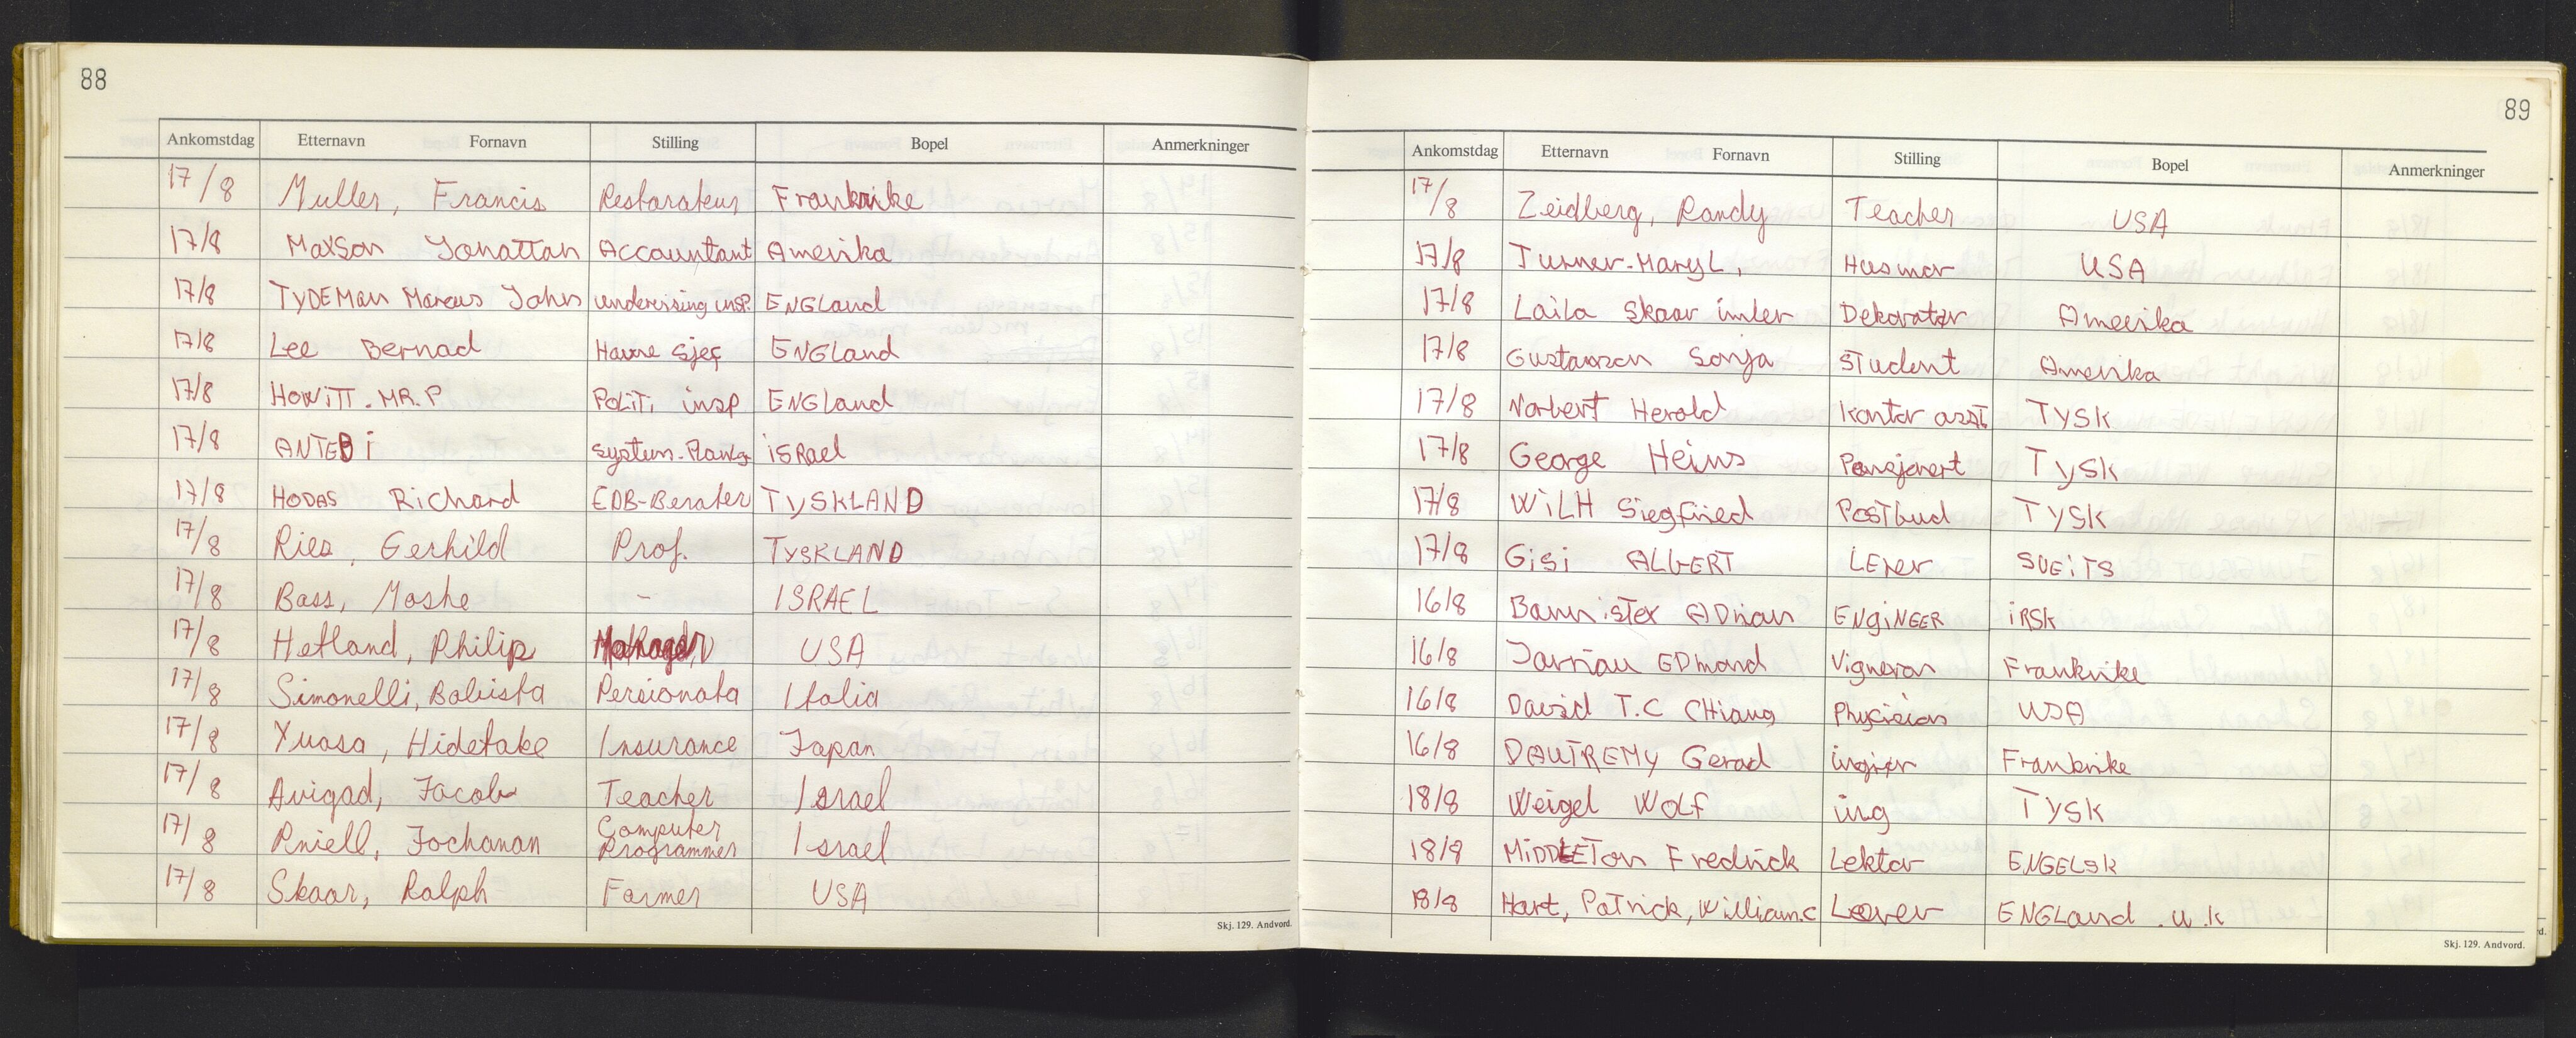 88
Ankomstdag Etternavn Fornavn Stilling Bopel Anmerkninger
17/8 Muller, Francis Restorateur Frankrike
17/8 Maxson Jonattan Accountant Amerika
17/8 TYDEMan Marcus John undervising insp. ENGLand
17/8 Lee Bernad Havne sjef ENGLand
17/8 HOWiTT. MR. P POLiTi insp ENGLand
17/8 ANTEBi iSRael
17/8 HODAS Richard EDB-Berater TYSKLAND
17/8 Ries, Gerhild Prof. TYSKLAND
17/8 Bass, Moshe - ISRAEL
17/8 Hetland, Philip USA
17/8 Simonelli, Babista Persionata Italia
17/8 Yuasa, Hidetake Insurance Japan
17/8 Avigad, Jacob Teacher Israel
17/8 Pniell, Jochanan Computer Programmer Israel
17/8 Skaar, Ralph Farmer USA
Skj. 129. Andvord.
89
Ankomstdag Etternavn Fornavn Stilling Bopel Anmerkninger
17/8 Zeidberg, Randy Teacher USA
17/8 Turner-Mary L, Husmor USA
17/8 Laila Skaar imler Dekoratør Ameerika
17/8 Gustavson Sonja STudent Amerika
17/8 Norbert Herold Kontor asst TYSK
17/8 George Heins Pensjonert TYSK
17/8 WiLH Siegfried PosTbud TYSK
17/8 Gisi ALbERT LErer SVEiTS
16/8 Bannister ADrian ENgiNEER iRSK
16/8 Jarriau EDmond Vigneron Frankrike
16/8 David T.C CHiang Physician USA
16/8 DAUTREMY Gerad ingiør Frankrike
18/8 Weigel WOLF ing TYSK
18/8 MiDDLETon Fredrick Lektor ENGELsk
18/8 Hart, PaTrick, William.C Lærer ENGLand .u.k
Skj. 129. Andvord.